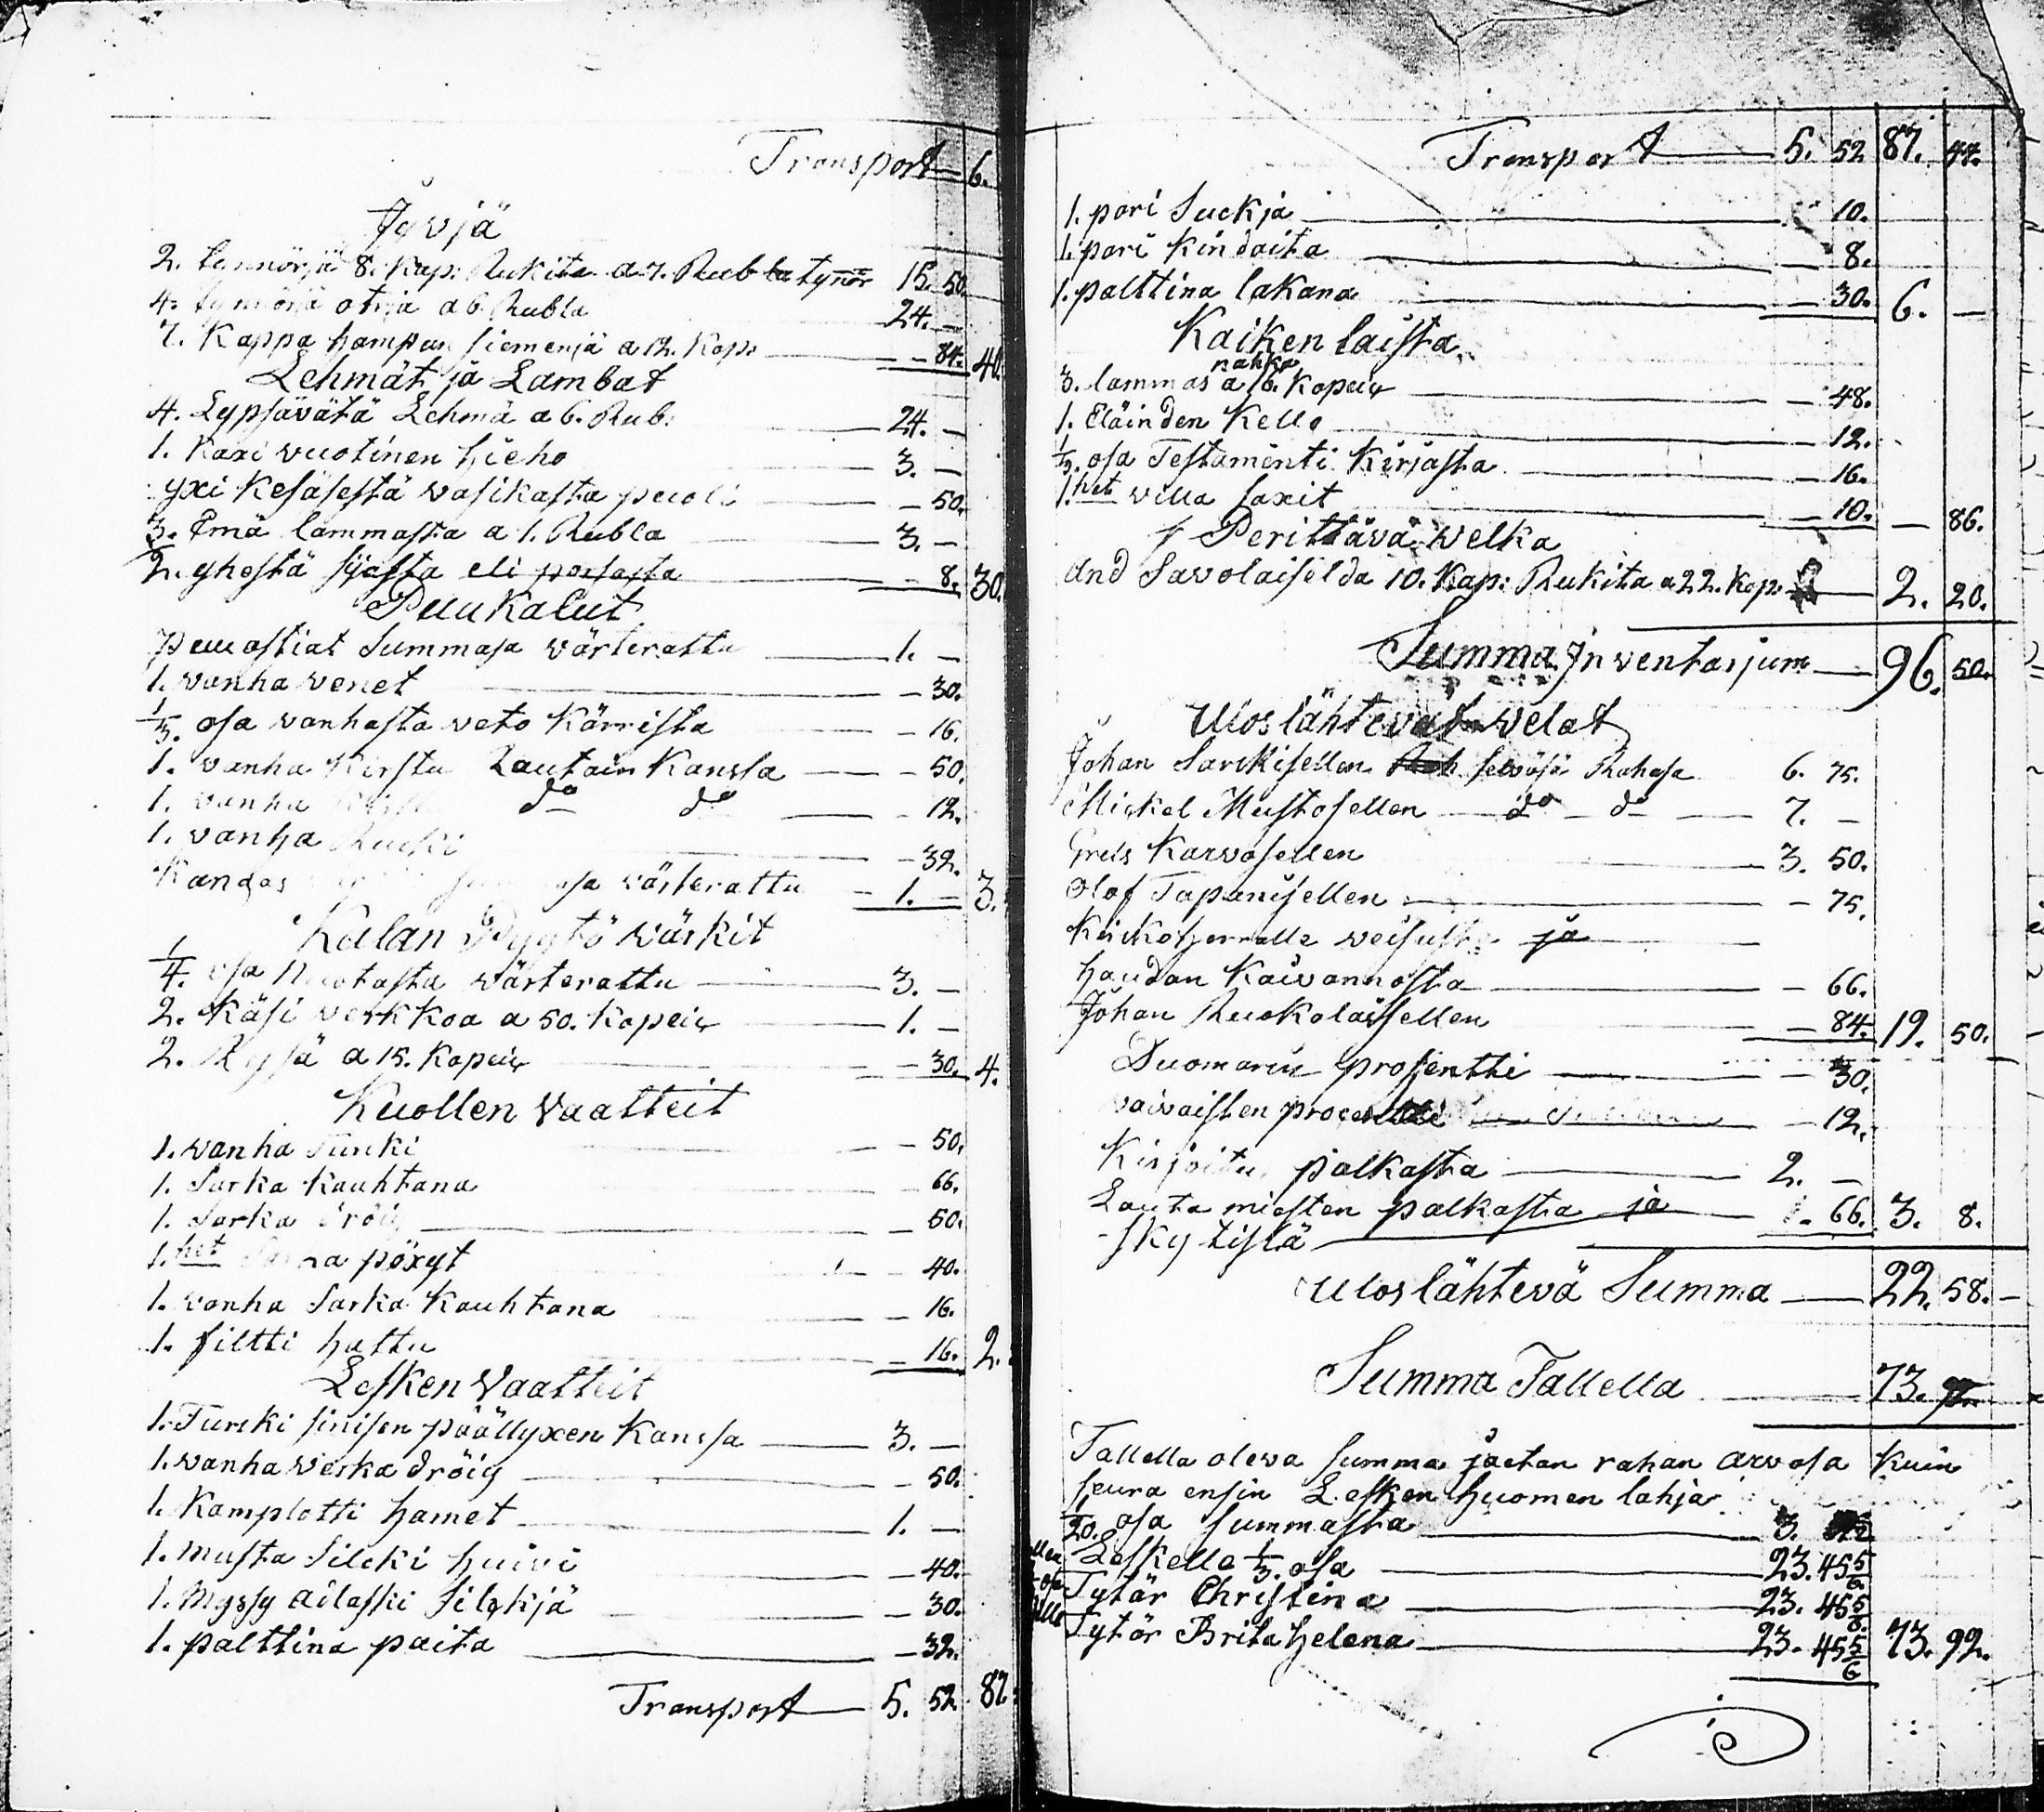 Transport 6.
Jyvjä
2. tynnörjä 8. kap: Rukita a 7. Rub la tynör 15. 50.
4. tynnörjä otria a 6 Rubla 24. —
7. Kappa hampun siemenjä a 12. Kop: — 84. 40.
Lehmät ja Lambat
4. Lypsävätä Lehmä a 6. Rub: 24. —
1. Kaxi vuotinen hieho 3. —
yxi Kesäsestä vasikasta puoli — 50.
3. Emä lammasta a 1. Rubla 3. —
1/2. yhestä sijasta eli porsasta — 8. 30.
Puukalut
puuastiat Summasa värterattu 1. —
1. vanha venet — 30.
1/3. osa vanhasta veto Kärristä — 16.
1. vanha Kirstu Rautain Kanssa — 50.
1. vanha do do — 12.
1. vanha — 32.
Kangas värterattu 1. — 3.
Kalan Pyytö värkit
1/4. osa Nuotasta värterattu 3. —
2. Käsi verkkoa a 50. Kopeik 1. —
2. Rysä a 15. Kopeik — 30. 4.
Kuollen Vaatteit
1. vanha Turki — 50.
1. Sarka Kauhtana — 66.
1. Sarka tröig — 50.
1. het pöxyt — 40.
1. vanha Sarka Kauhtana — 16.
1. filtti hattu — 16. 2.
Lesken Vaatteit
1. Turcki sinisen päällyxen Kanssa 3. —
1. vanha Verka dröig — 50.
1. Kamplotti hamet 1. —
1. musta Silcki huivi — 40.
1. Myssy ailaski Silckjä — 30.
1. palttina paita — 32.
Transport 5. 52. 87.
Transport 5. 52 87. 44.
1. pari Suckja 10.
1. pari Kindaita — 8.
1. palttina lakana — 30. 6. —
Kaiken laista
nahka
3. lammas a 16. Kopeik — 48.
1. Eläinden Kello — 12.
1/3. osa Testamenti Kirjasta — 16.
1. het villa saxit — 10. — 86.
Perittävä Welka
And Savolaiselda 10. Kap: Rukita a 22. Kop: 2. 20.
Summa Inventarjum 96. 50.
Uloslähtevät velat
Johan Sarckisellen selväsä Rahasa 6. 75.
Mickel Mustosellen do do 7. —
Grels Karvosellen 3. 50.
Olof Tapanisellen — 75.
Kirkoherralle veisusta ja
haudan Kaivannosta — 66.
Johan Ruokolaissellen — 84. 19. 50.
Duomarin prosentti — 30.
vaivaisten procentti — 12.
Kirjoitu palkasta 2. —
Lauta miesten palkasta ja — 66. 3. 8.
skytislä
Uloslähtevä Summa 22. 58. —
Summa Tallella 73. 92.
Tallella oleva summa jaetan rahan arvosa kuin
seura ensin Lesken huomen lahja
1/20. osa summasta 3.
Leskelle 1/3. osa 23. 45 5/6.
Tytär Christina 23. 45 5/6.
Tytär Brita Helena 23. 45 5/6 73. 92.